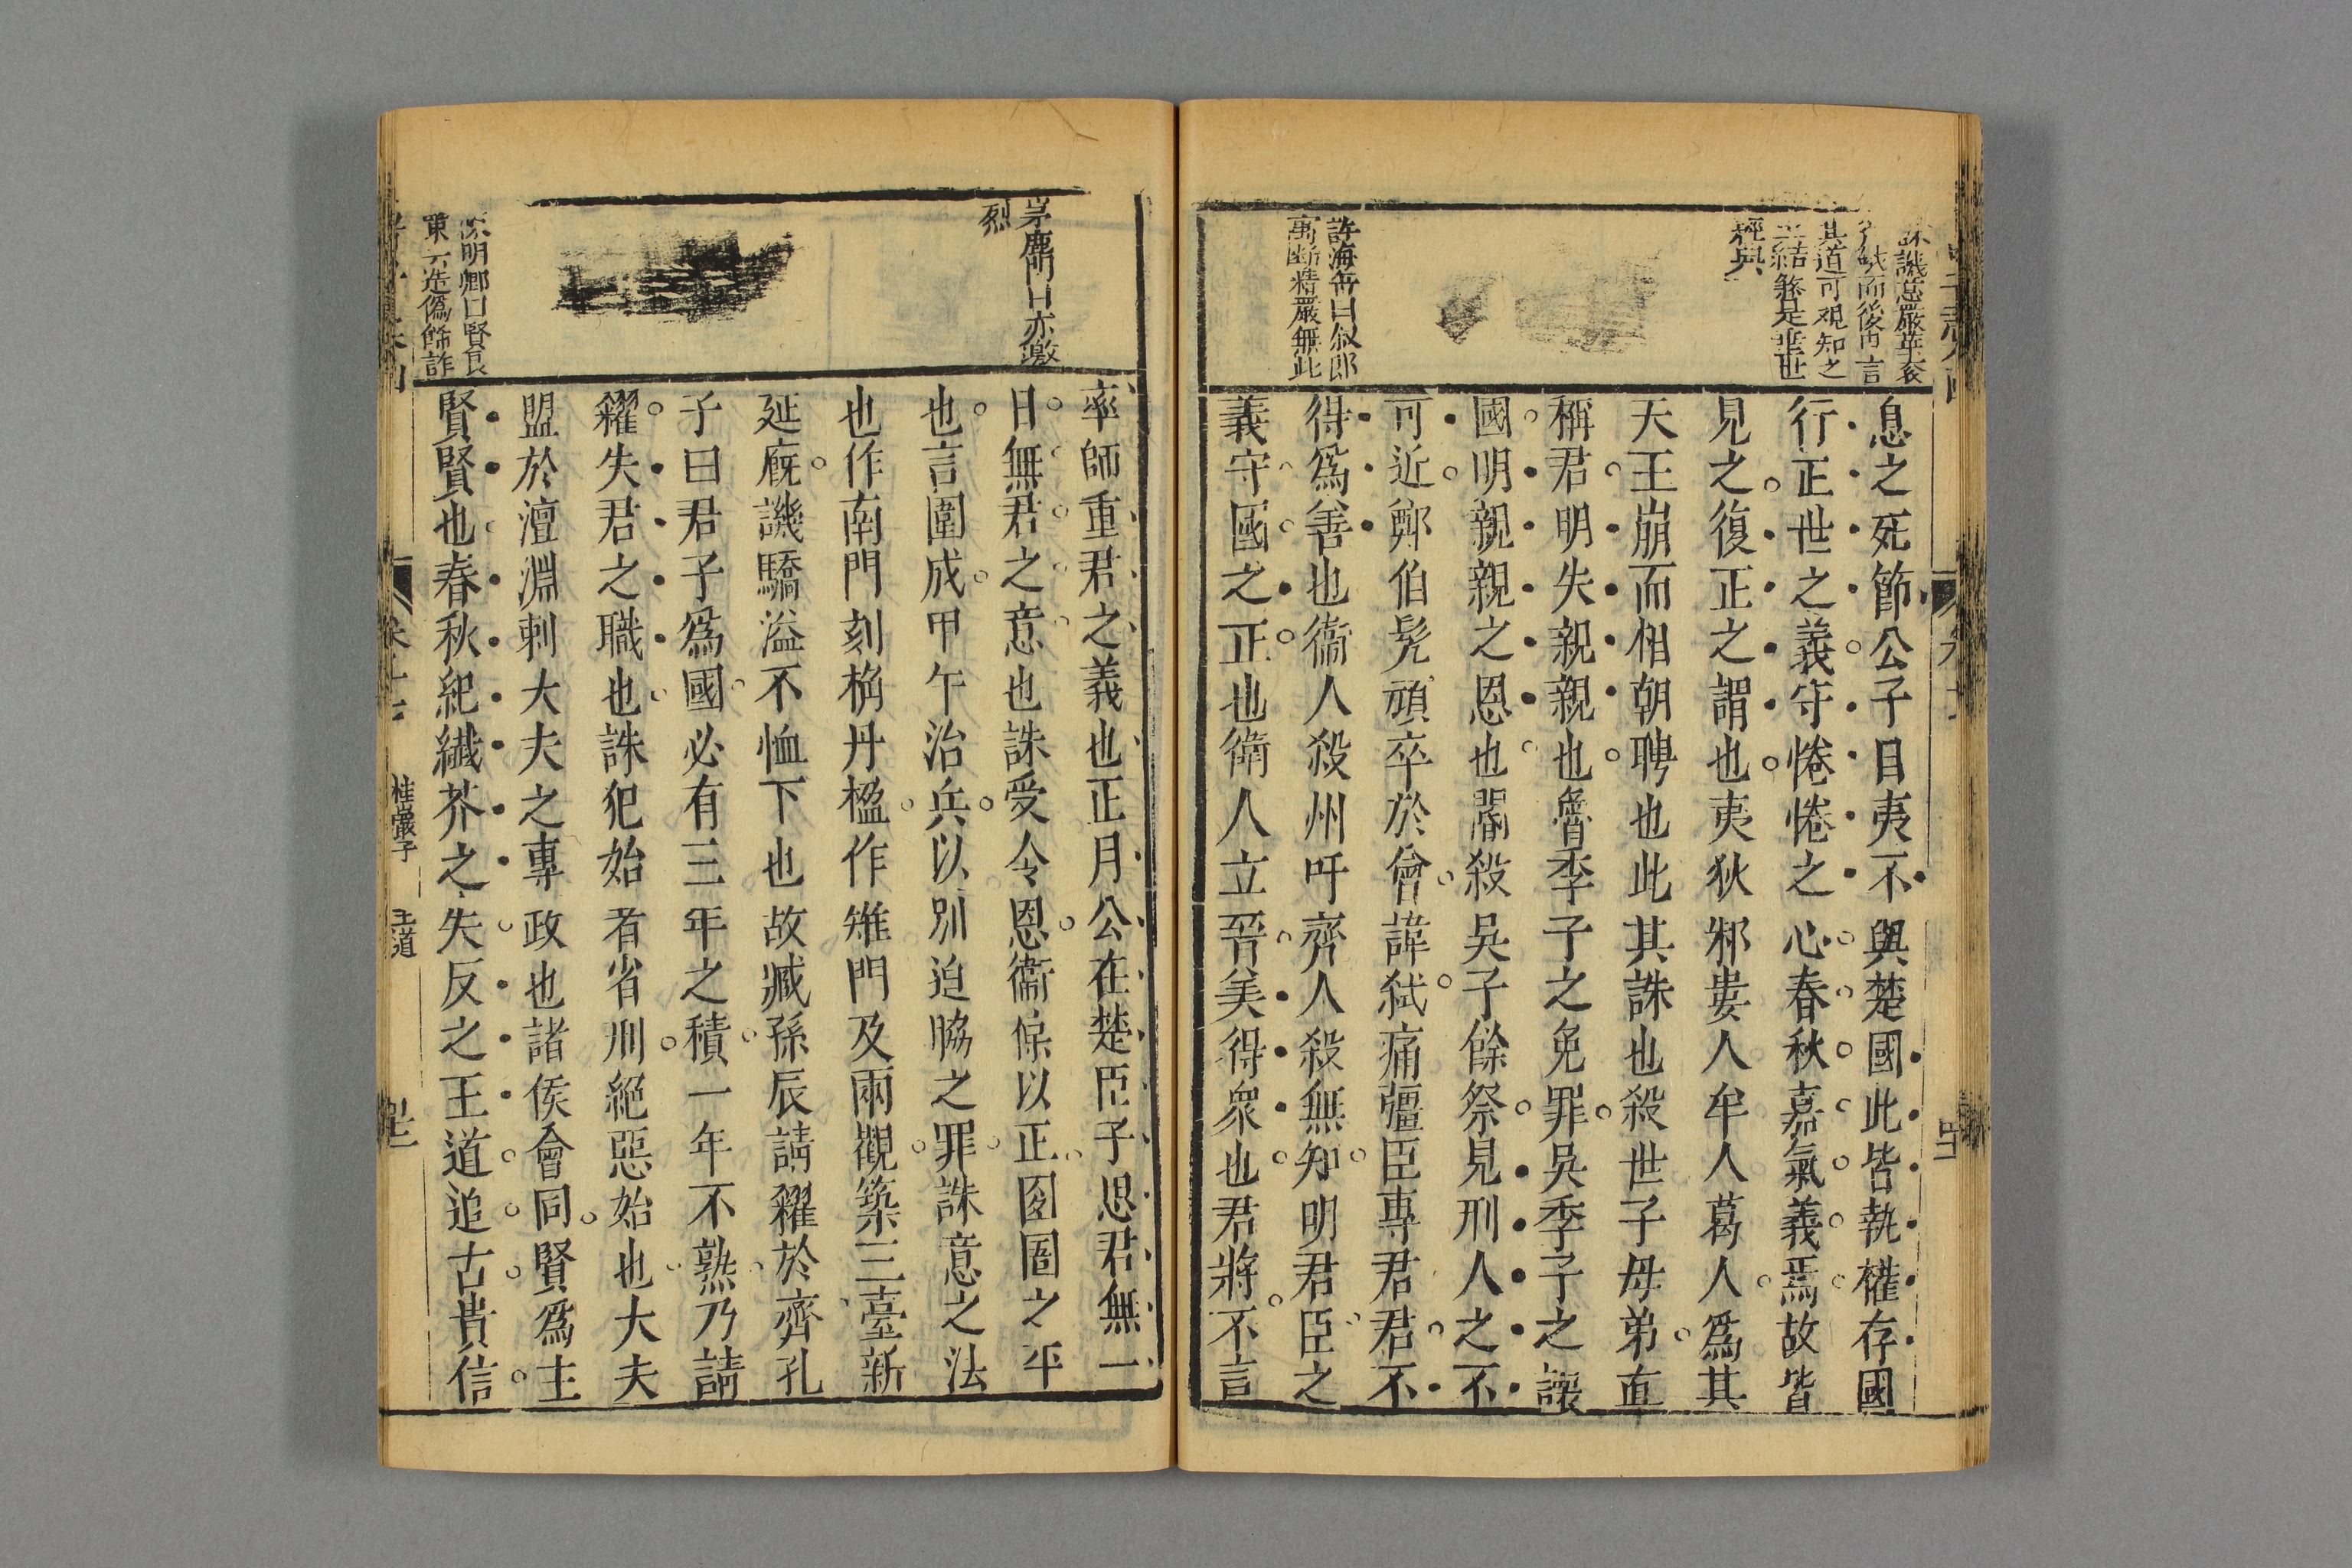 誅譏意嚴華袞
而後言
其道可覌知之
結繇是垂世
經典
許海岳曰叙郎
萬斷精嚴無此
息之死節公子目夷不與楚國此皆執權存國
行正世之義守惓惓之心春秋嘉氣義焉故皆
見之復正之謂也夷狄邾婁人牟人葛人爲其
天王崩而相朝聘也此其誅也殺世子母弟直
稱君明失親親也魯季子之免罪吳季子之讓
國明親親之恩也閽殺吳子餘祭見刑人之不
可近鄭伯髡頑卒於會諱弑痛彊臣專君君不
得爲善也衞人殺州吁齊人殺無知明君臣之
義守國之正也衛人立晉美得衆也君將不言
率師重君之義也正月公在楚臣子思君無一
日無君之意也誅受令恩衞侯以正囹圄之平
也言圍成甲午治兵以別迫脇之罪誅意之法
也作南門刻桷丹楹作雉門及兩觀築三臺新
延廐譏驕溢不恤下也故臧孫辰請糴於齊孔
子曰君子爲國必有三年之積一年不熟乃請
糴失君之職也誅犯始者省刑絕惡始也大夫
盟於澶淵刺大夫之專政也諸侯會同賢爲主
賢賢也春秋紀纎芥之失反之王道追古貴信
茅鹿門曰亦激
烈
明卿曰賢良
東云造僞飾詐
桂巖子
王道